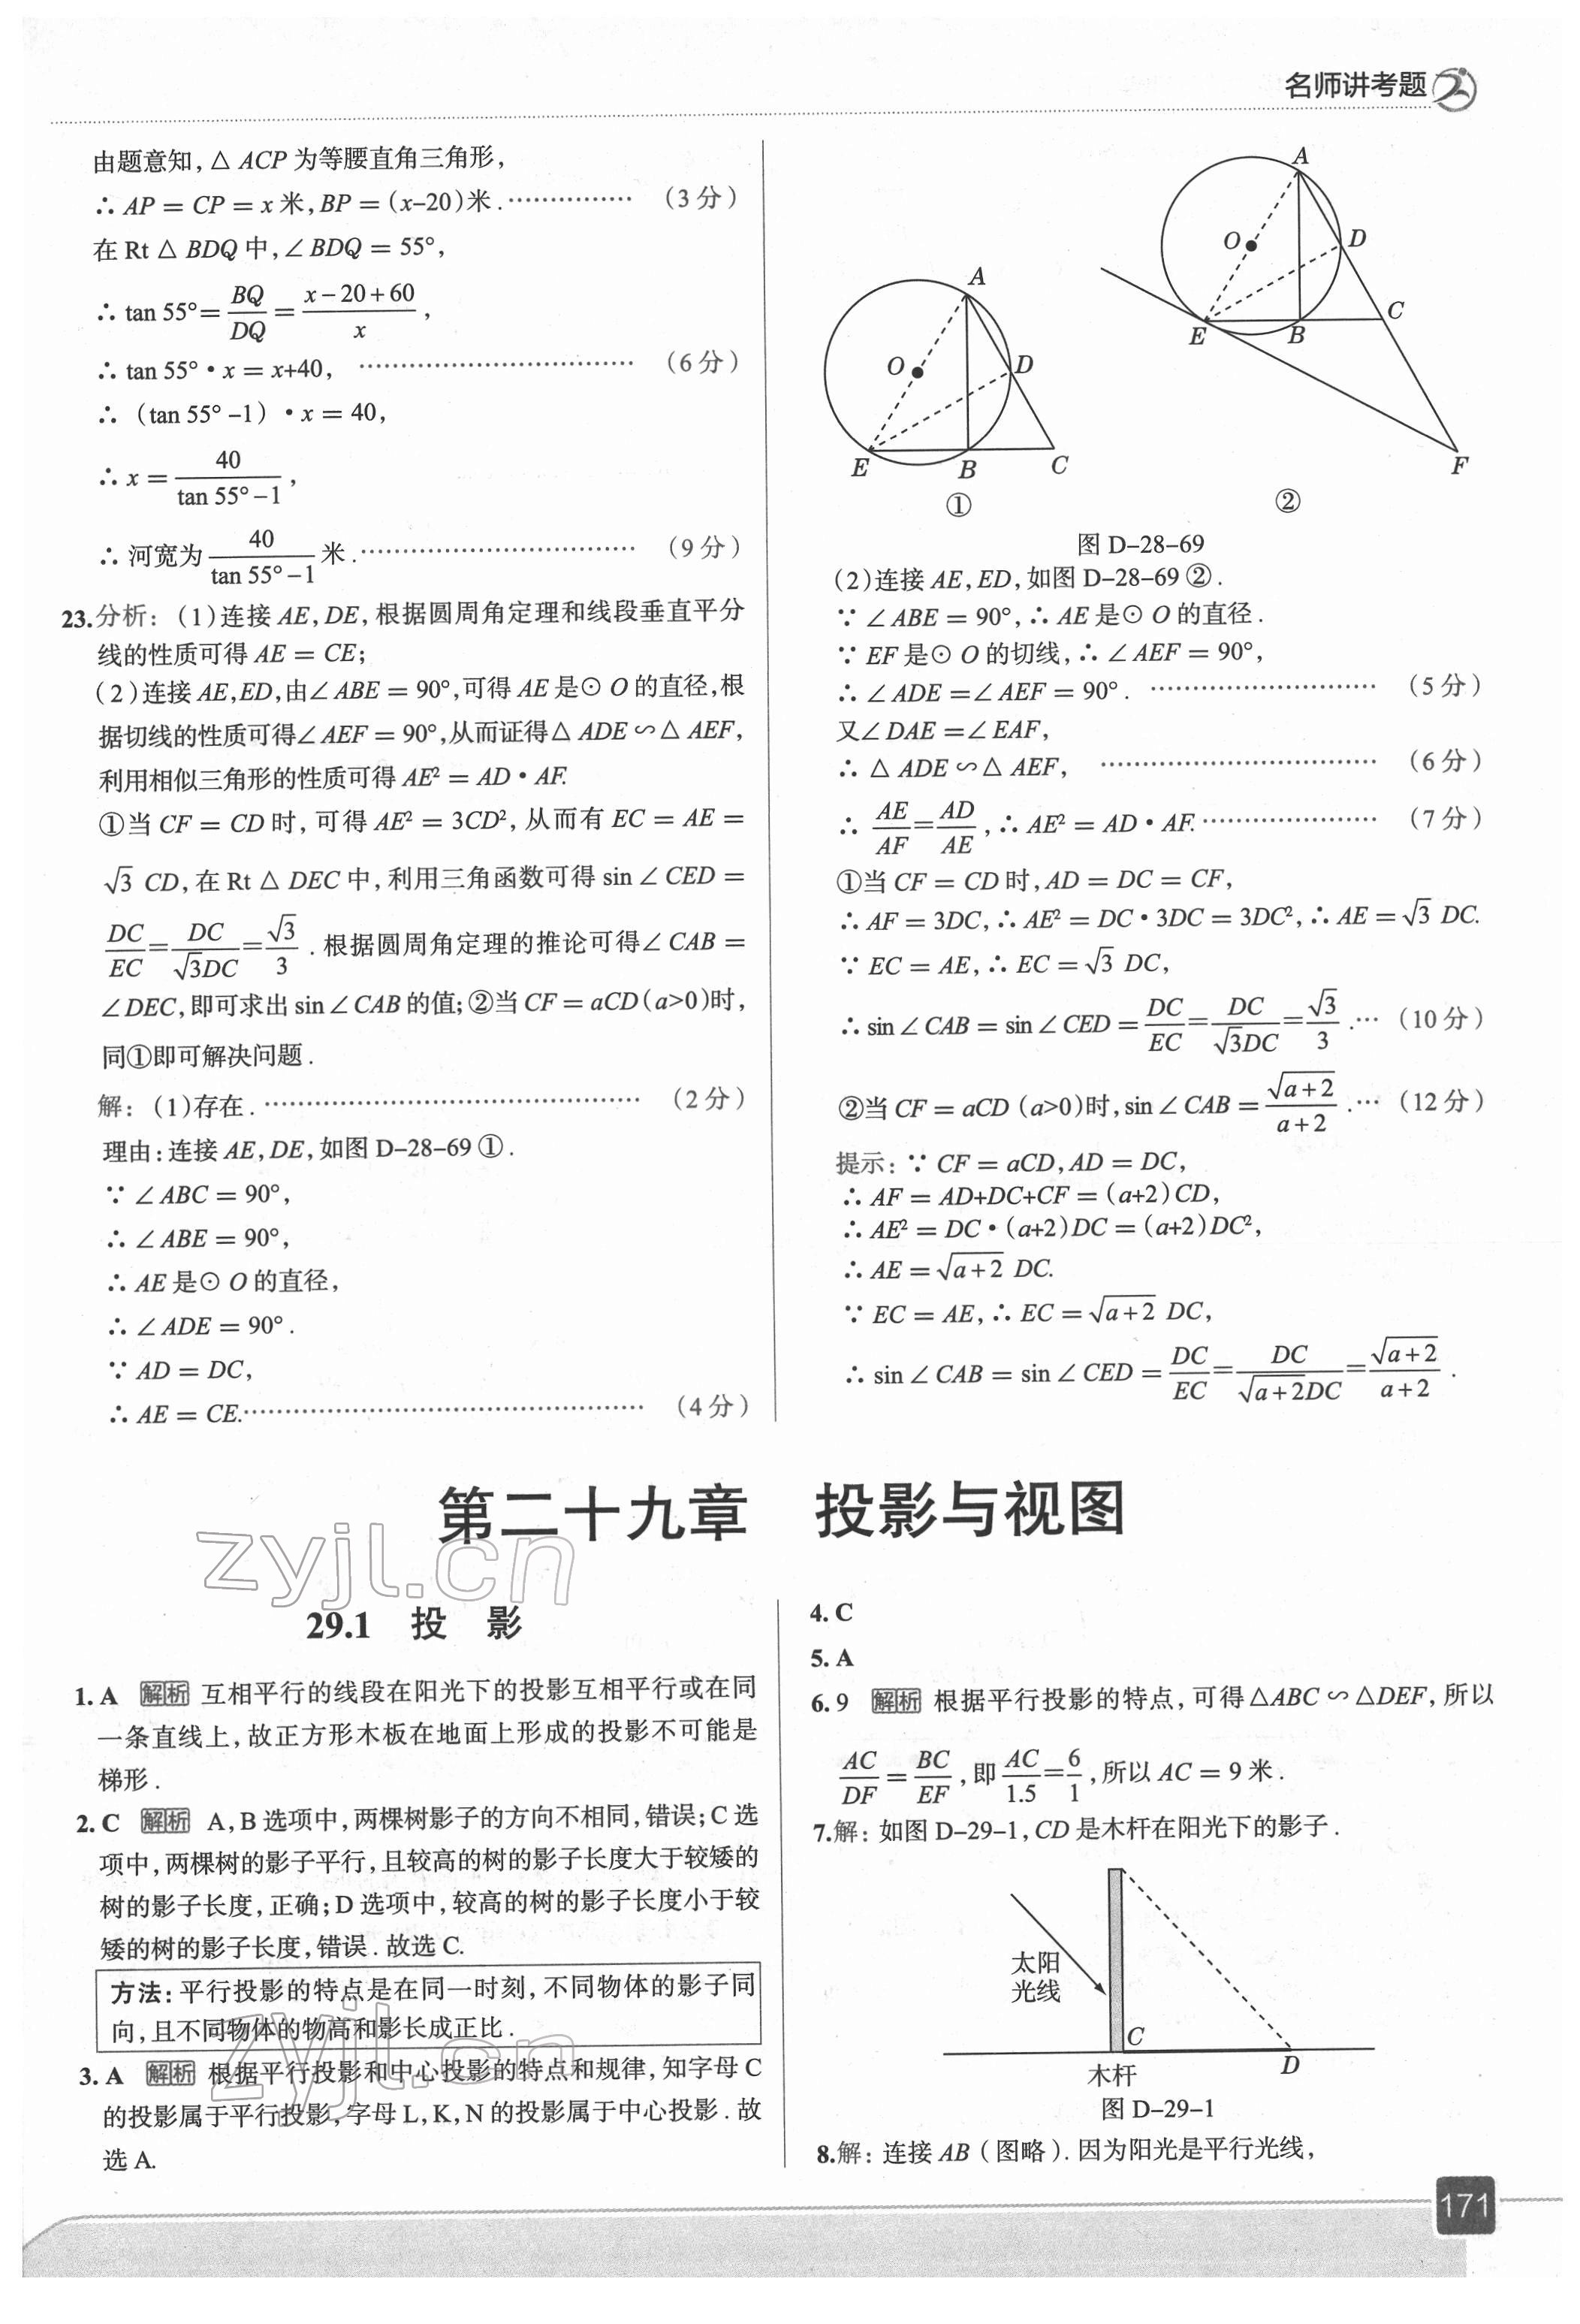 名师讲考题
由题意知,△ ACP 为等腰直角三角形,
∴ AP = CP = x 米,BP = (x-20)米.……………(3分)
在 Rt △ BDQ 中,∠ BDQ = 55°,
∴ tan 55°= BQ/DQ = (x-20+60)/x ,
∴ tan 55°·x = x+40, ……………………(6分)
∴ (tan 55°-1)·x = 40,
∴ x = 40/(tan 55°-1) ,
∴ 河宽为 40/(tan 55°-1) 米.……………………(9分)
23.分析:(1)连接 AE,DE,根据圆周角定理和线段垂直平分
线的性质可得 AE = CE;
(2)连接 AE,ED,由∠ ABE = 90°,可得 AE 是⊙ O 的直径,根
据切线的性质可得∠ AEF = 90°,从而证得△ ADE ∽△ AEF,
利用相似三角形的性质可得 AE² = AD·AF.
①当 CF = CD 时,可得 AE² = 3CD²,从而有 EC = AE =
√3 CD,在 Rt △ DEC 中,利用三角函数可得 sin ∠ CED =
DC/EC = DC/(√3DC) = √3/3 .根据圆周角定理的推论可得∠ CAB =
∠DEC,即可求出 sin∠CAB 的值;②当 CF = aCD(a>0)时,
同①即可解决问题.
解:(1)存在.……………………………(2分)
理由:连接 AE,DE,如图 D-28-69 ①.
∵ ∠ ABC = 90°,
∴ ∠ ABE = 90°,
∴ AE 是⊙ O 的直径,
∴ ∠ ADE = 90°.
∵ AD = DC,
∴ AE = CE.……………………………(4分)
A
O
D
E
B
C
①
A
O
D
E
B
C
F
②
图 D-28-69
(2)连接 AE,ED,如图 D-28-69 ②.
∵ ∠ ABE = 90°,∴ AE 是⊙ O 的直径.
∵ EF 是⊙ O 的切线,∴ ∠ AEF = 90°,
∴ ∠ ADE =∠ AEF = 90°. …………………(5分)
又∠ DAE =∠ EAF,
∴ △ ADE ∽△ AEF, ……………………(6分)
∴ AE/AF = AD/AE ,∴ AE² = AD·AF.………………(7分)
①当 CF = CD 时,AD = DC = CF,
∴ AF = 3DC,∴ AE² = DC·3DC = 3DC²,∴ AE = √3 DC.
∵ EC = AE,∴ EC = √3 DC,
∴ sin ∠ CAB = sin ∠ CED = DC/EC = DC/(√3DC) = √3/3 .…(10分)
②当 CF = aCD (a>0)时,sin ∠ CAB = √(a+2)/(a+2) .…(12分)
提示:∵ CF = aCD,AD = DC,
∴ AF = AD+DC+CF = (a+2)CD,
∴ AE² = DC·(a+2)DC = (a+2)DC²,
∴ AE = √(a+2) DC.
∵ EC = AE,∴ EC = √(a+2) DC,
∴ sin ∠ CAB = sin ∠ CED = DC/EC = DC/(√(a+2)DC) = √(a+2)/(a+2) .
第二十九章 投影与视图
zyjl.cn
29.1 投 影
1. A 解析 互相平行的线段在阳光下的投影互相平行或在同
一条直线上,故正方形木板在地面上形成的投影不可能是
梯形.
2. C 解析 A,B 选项中,两棵树影子的方向不相同,错误;C 选
项中,两棵树的影子平行,且较高的树的影子长度大于较矮的
树的影子长度,正确;D 选项中,较高的树的影子长度小于较
矮的树的影子长度,错误.故选 C.
方法:平行投影的特点是在同一时刻,不同物体的影子同
向,且不同物体的物高和影长成正比.
zyjl.cn
3. A 解析 根据平行投影和中心投影的特点和规律,知字母 C
的投影属于平行投影,字母 L,K,N 的投影属于中心投影.故
选 A.
4. C
5. A
6. 9 解析 根据平行投影的特点,可得△ABC ∽ △DEF,所以
AC/DF = BC/EF ,即 AC/1.5 = 6/1 ,所以 AC = 9 米.
7.解:如图 D-29-1,CD 是木杆在阳光下的影子.
太阳
光线
C
D
木杆
图 D-29-1
8.解:连接 AB(图略).因为阳光是平行光线,
171